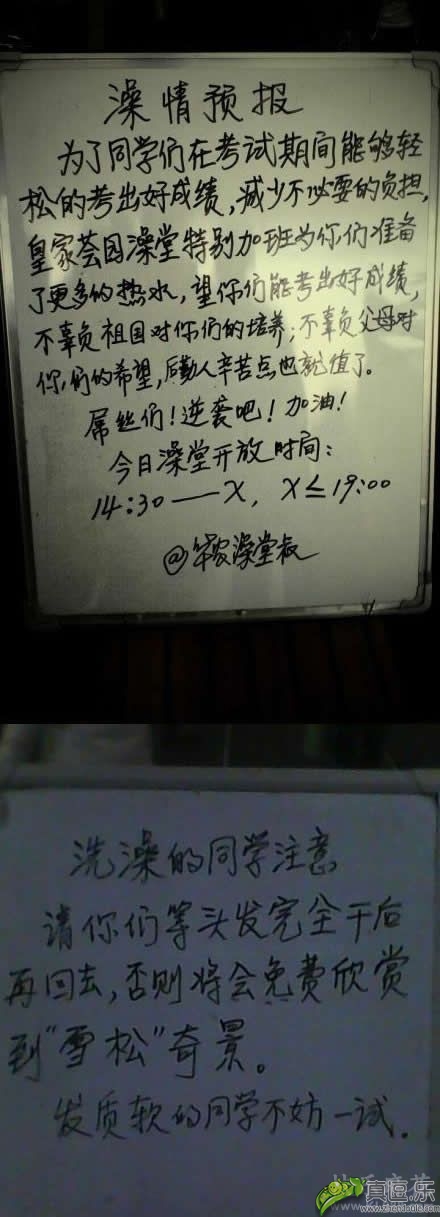 澡情预报
为了同学们在考试期间能够轻
松的考出好成绩,减少不必要的负担,
皇家荟园澡堂特别加班为你们准备
了更多的热水,望你们能考出好成绩,
不辜负祖国对你们的培养;不辜负父母对
你们的希望,后勤人辛苦点也就值了。
屌丝们!逆袭吧!加油!
今日澡堂开放时间:
14:30——X, X≤19:00
@华农澡堂叔
洗澡的同学注意
请你们等头发完全干后
再回去,否则将会免费欣赏
到"雪松"奇景。
发质软的同学不妨一试.
真逗.乐
www.zhendoule.com